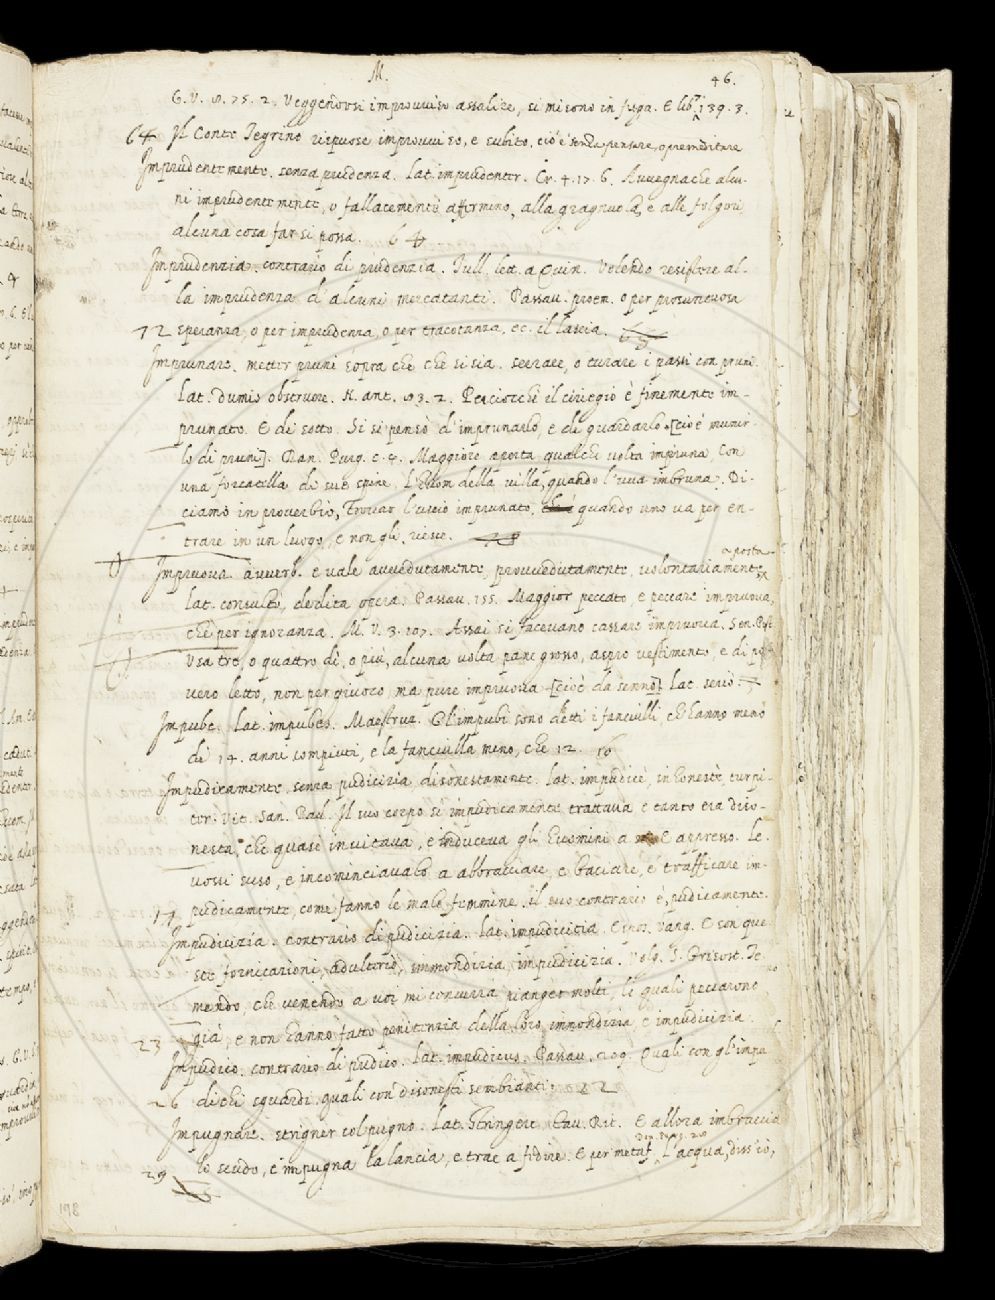 M. 46.
G. V. 8. 75. 2. Veggendosi improvviso assalire, si misono in fuga. E lib. 139. 3.
64 Il Conte Tegrino rispuose improvviso, e subito, cio è senza pensare, o premeditare
Imprudentemente. senza prudenza. Lat. imprudenter. Cr. 4. 17. 6. Avvegnache alcu-
ni imprudentemente, o fallacemente affermino, alla gragnuola, e alle folgori
alcuna cosa far si possa. 64
Imprudenzia. contrario di prudenzia. Tull. lett. a Quin. Volendo resistere al-
la imprudenza d'alcuni mercatanti. Passav. proem. o per prosuntuosa
72 speranza, o per imprudenza, o per tracotanza, ec. il lascia.
Imprunare. metter pruni sopra che che si sia. serrare, o turare i passi con pruni.
Lat. Dumis obstruere. N. ant. 93. 2. Perciocchè il ciriegio è finemente im-
prunato. E di sotto. Si si pensò d'imprunarlo, e di guardarlo [cioè munir-
lo di pruni]. Dan. Purg. c. 4. Maggiore aperta qualche volta impruna Con
una forcatella di sue spine, L'huom della villa, quando l'uva imbruna. Di-
ciamo in proverbio, Trovar l'uscio imprunato, quando uno va per en-
trare in un luogo, e non gli riesce. 78
a posta
Impruova. avverb. e vale avvedutamente, provvedutamente, volontariamente,
Lat. consultò, dedita opera. Passav. 155. Maggior peccato, è peccare impruova,
che per ignoranza. M. V. 3. 107. Assai si facevano cassare impruova. Sen. Pist.
Usa tre, o quattro dì, o più, alcuna volta pane grosso, aspro vestimento, e di po-
vero letto, non per giuoco, ma pure impruova [cioè da senno] Lat. seriò
Impube. Lat. impubes. Maestruz. Gl'impubi sono detti i fanciulli, che hanno meno
di 14. anni compiuti, e la fanciulla meno, che 12. 16
Impudicamente. senza pudicizia, disonestamente. Lat. impudicè, inhonestè, turpi-
ter. Vit. San. Pad. Il suo corpo si impudicamente trattava, e tanto era diso-
nesta, che quasi invitava, e induceva gli huomini a E appresso. Le-
vossi suso, e incominciavalo a abbracciare, e baciare, e trafficare im-
17 pudicamente, come fanno le male femmine. il suo contrario è, pudicamente.
Impudicizia. contrario di pudicizia. Lat. impudicitia. Espos. Vang. E con que-
ste fornicazioni, adulterio, immondizia, impudicizia. Volg. S. Grisost. Te-
mendo, che venendo a voi mi convenia pianger molti, li quali peccarono
23 già, e non hanno fatto penitenzia della loro immondizia, e impudicizia.
Impudico. contrario di pudico. Lat. impudicus. Passav. 209. Quali con gl'impu-
26 dichi sguardi, quali con disonesti sembianti. 22
Impugnare. strigner col pugno. Lat. Stringere. Tav. Rit. E allora imbraccia
Dan. Purg. 28
29 lo scudo, e impugna la lancia, e trae a fedire. E per metaf. L'acqua, diss'io,
198